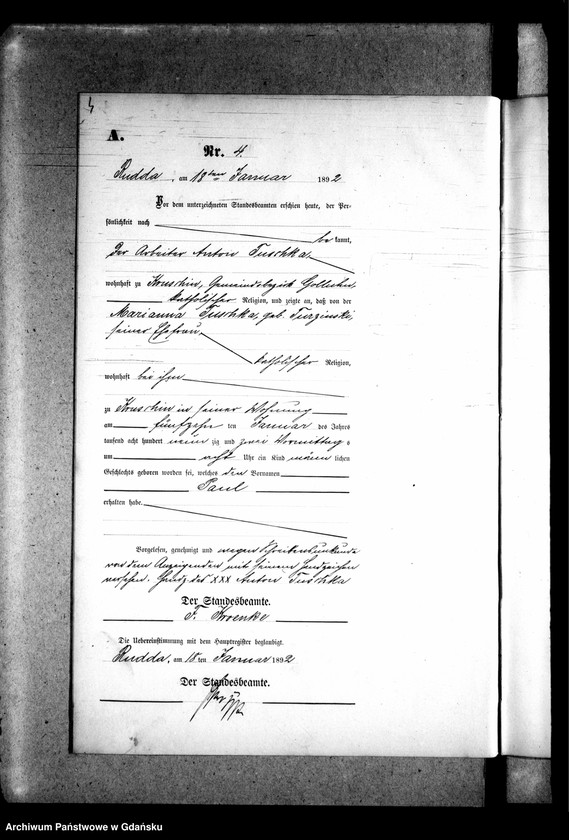 4
A.
Nr. 4.
Rudda, am 18ten Januar 1892
Vor dem unterzeichneten Standesbeamten erschien heute, der Per-
sönlichkeit nach
bekannt,
der Arbeiter Anton Tuschka,
wohnhaft zu Kruschin, Gemeindebezirk
katholischer Religion, und zeigte an, daß von der
Marianna Tuschka, geb. Turzinski,
seiner Ehefrau,
katholischer Religion,
wohnhaft bei ihm
zu Kruschin in seiner Wohnung
am fünfzehn ten Januar des Jahres
tausend acht hundert neun zig und zwei Vormittags
um acht Uhr ein Kind männlichen
Geschlechts geboren worden sei, welches den Vornamen
Paul
erhalten habe.
Vorgelesen, genehmigt und wegen Schreibensunkunde
von dem Anzeigenden mit seinem Handzeichen
versehen. Handz. des XXX Anton Tuschka
Der Standesbeamte.
F. Kroenke
Die Uebereinstimmung mit dem Hauptregister beglaubigt.
Rudda, am 18 ten Januar 1892
Der Standesbeamte.
Archiwum Państwowe w Gdańsku